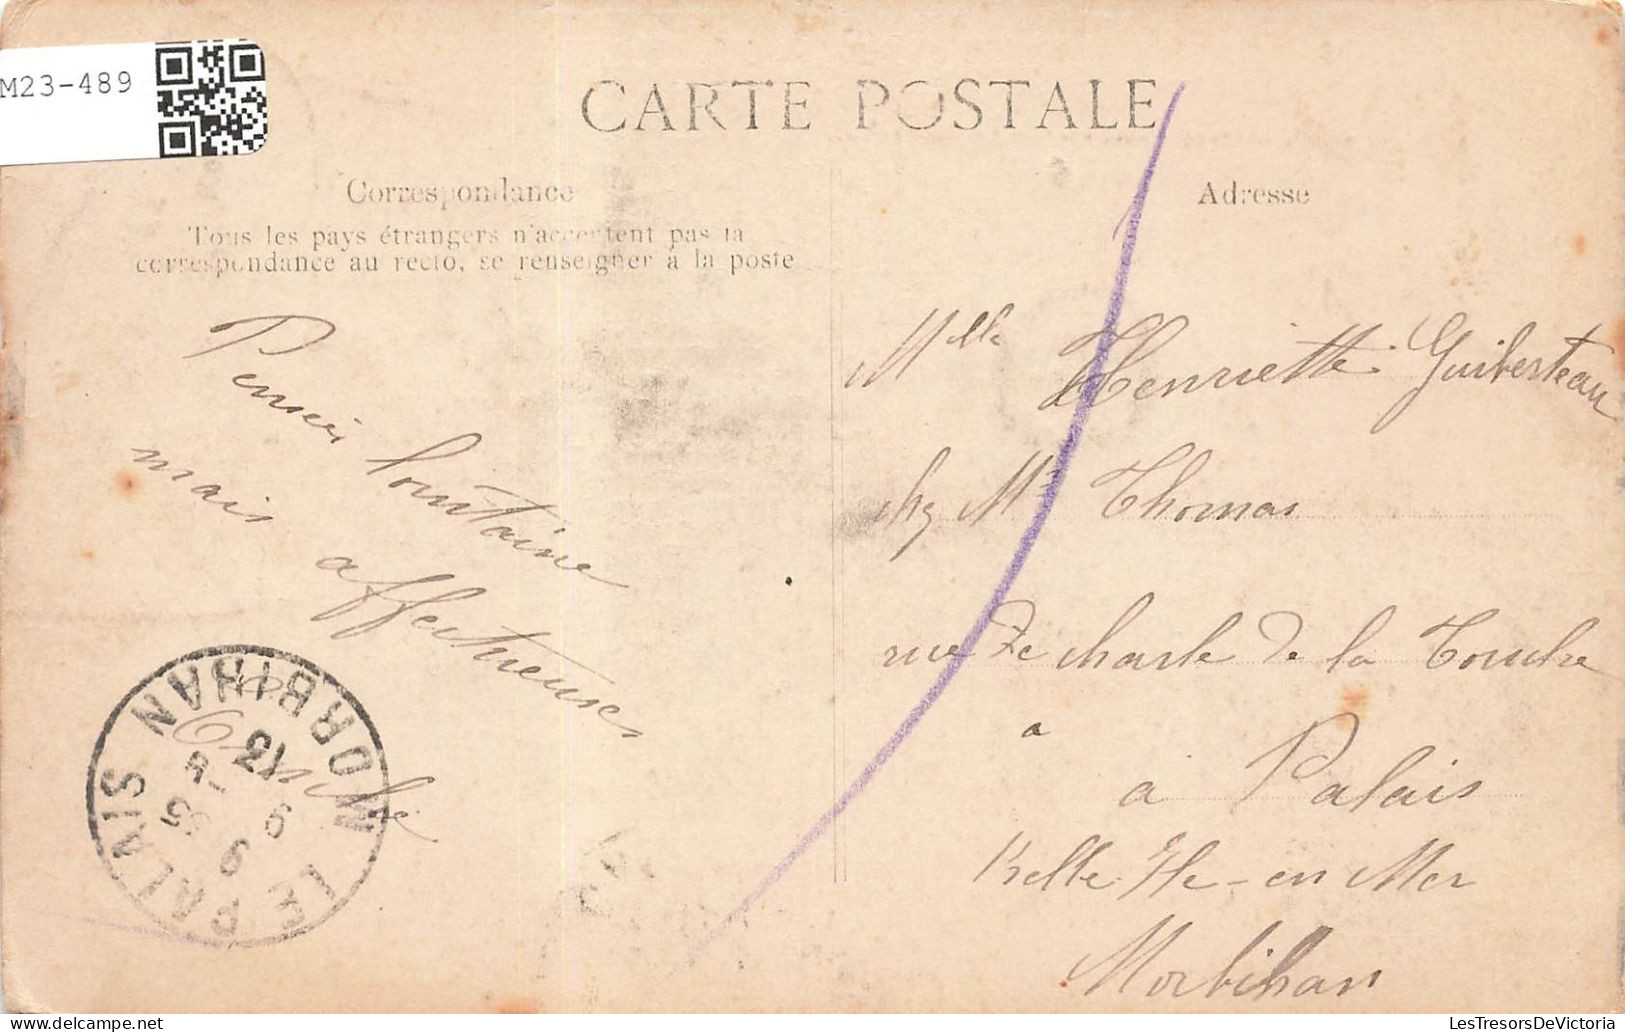 M23-489
CARTE POSTALE
Correspondance
Tous les pays étrangers n'acceptent pas la
correspondance au recto, se renseigner à la poste
Pensées lointaine
mais affectueuses
Adresse
Mlle Henriette Guiberteau
chez Mr Thomas
rue de la Touche
a
à Palais
Belle Ile-en Mer
Morbihan
LE PALAIS MORBIHAN
LesTresorsDeVictoria
www.delcampe.net